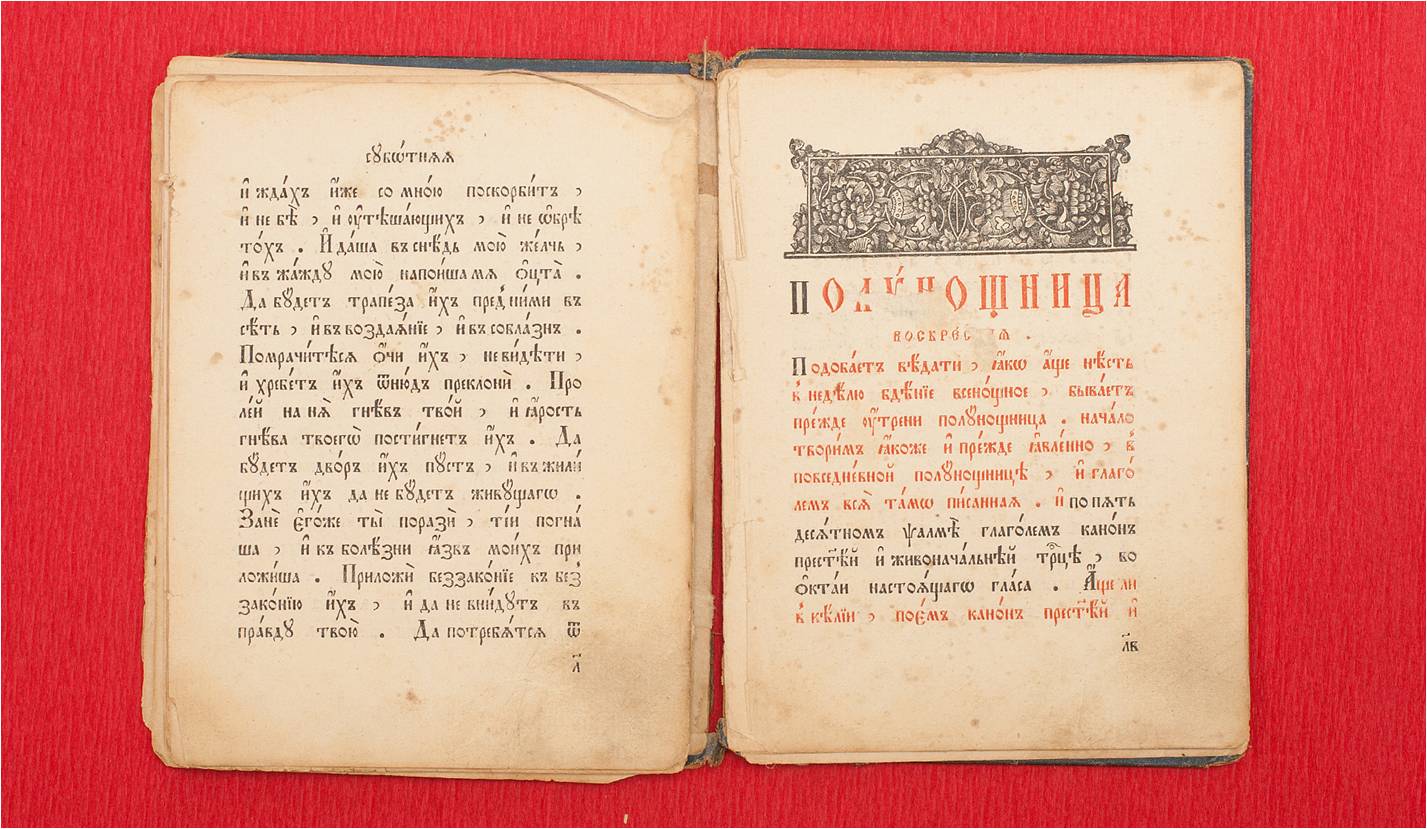 сꙋбѡ́тнѧѧ
и҆ жда́хъ и҆́же со мно́ю поскорби́тъ ,
и҆ не бѣ̀ , и҆ ᲂу҆тѣша́ющихъ , и҆ не ѡ҆брѣ
то́хъ . И҆ да́ша въ снѣ́дь мою̀ же́лчь ,
и҆ въ жа́ждꙋ мою̀ напои́ша мѧ ѻ҆́цта̀ .
Да бꙋ́детъ трапе́за и҆́хъ пред̾ ни́ми въ
сѣ́ть , и҆ въ воздаѧ́нїе , и҆ въ собла́знъ .
Помрачи́тѣсѧ ѻ҆́чи и҆́хъ , не ви́дѣти ,
и҆ хребе́тъ и҆́хъ ѿню́дъ преклонѝ . Про
ле́й на нѧ̀ гнѣ́въ тво́й , и҆ ꙗ҆́рость
гнѣ́ва твоегѡ̀ пости́гнетъ и҆́хъ . Да
бꙋ́детъ дво́ръ и҆́хъ пꙋ́стъ , и҆ въ жили́
щихъ и҆́хъ да не бꙋ́детъ живꙋ́щагѡ .
Занѐ є҆го́же ты̀ поразѝ , ті́и погна́
ша , и҆ къ болѣ́зни ꙗ҆́звъ мои́хъ при
ложи́ша . Приложѝ беззако́нїе къ без̾
зако́нїю и҆́хъ , и҆ да не вни́дꙋтъ въ
пра́вдꙋ твою̀ . Да потребѧ́тсѧ ѿ
л҃
Полꙋ́нощница
воскре́с
Подоба́етъ вѣ́дати , ꙗ҆́кѡ а҆́ще нѣ́сть
в̾ недѣ́лю бдѣ́нїе всено́щное , быва́етъ
пре́жде ᲂу҆́трени полꙋ́нощница . нача́ло
твори́мъ ꙗ҆́коже и҆ пре́жде ꙗ҆вле́нно , в̾
повседне́вной полꙋ́нощницѣ , и҆ глаго́
лемъ всѧ̀ та́мѡ пи́санная . и҆ по пѧть
десѧ́тномъ ѱалмѣ̀ глаго́лемъ кано́нъ
прест҃ѣ́й и҆ живонача́льнѣй трⷪ҇цѣ , во
ѻ҆кта́и настоѧ́щагѡ гла́са . А҆́ще ли
в̾ ке́лїи , пое́мъ кано́нъ прест҃ѣ́й и҆
л҃в